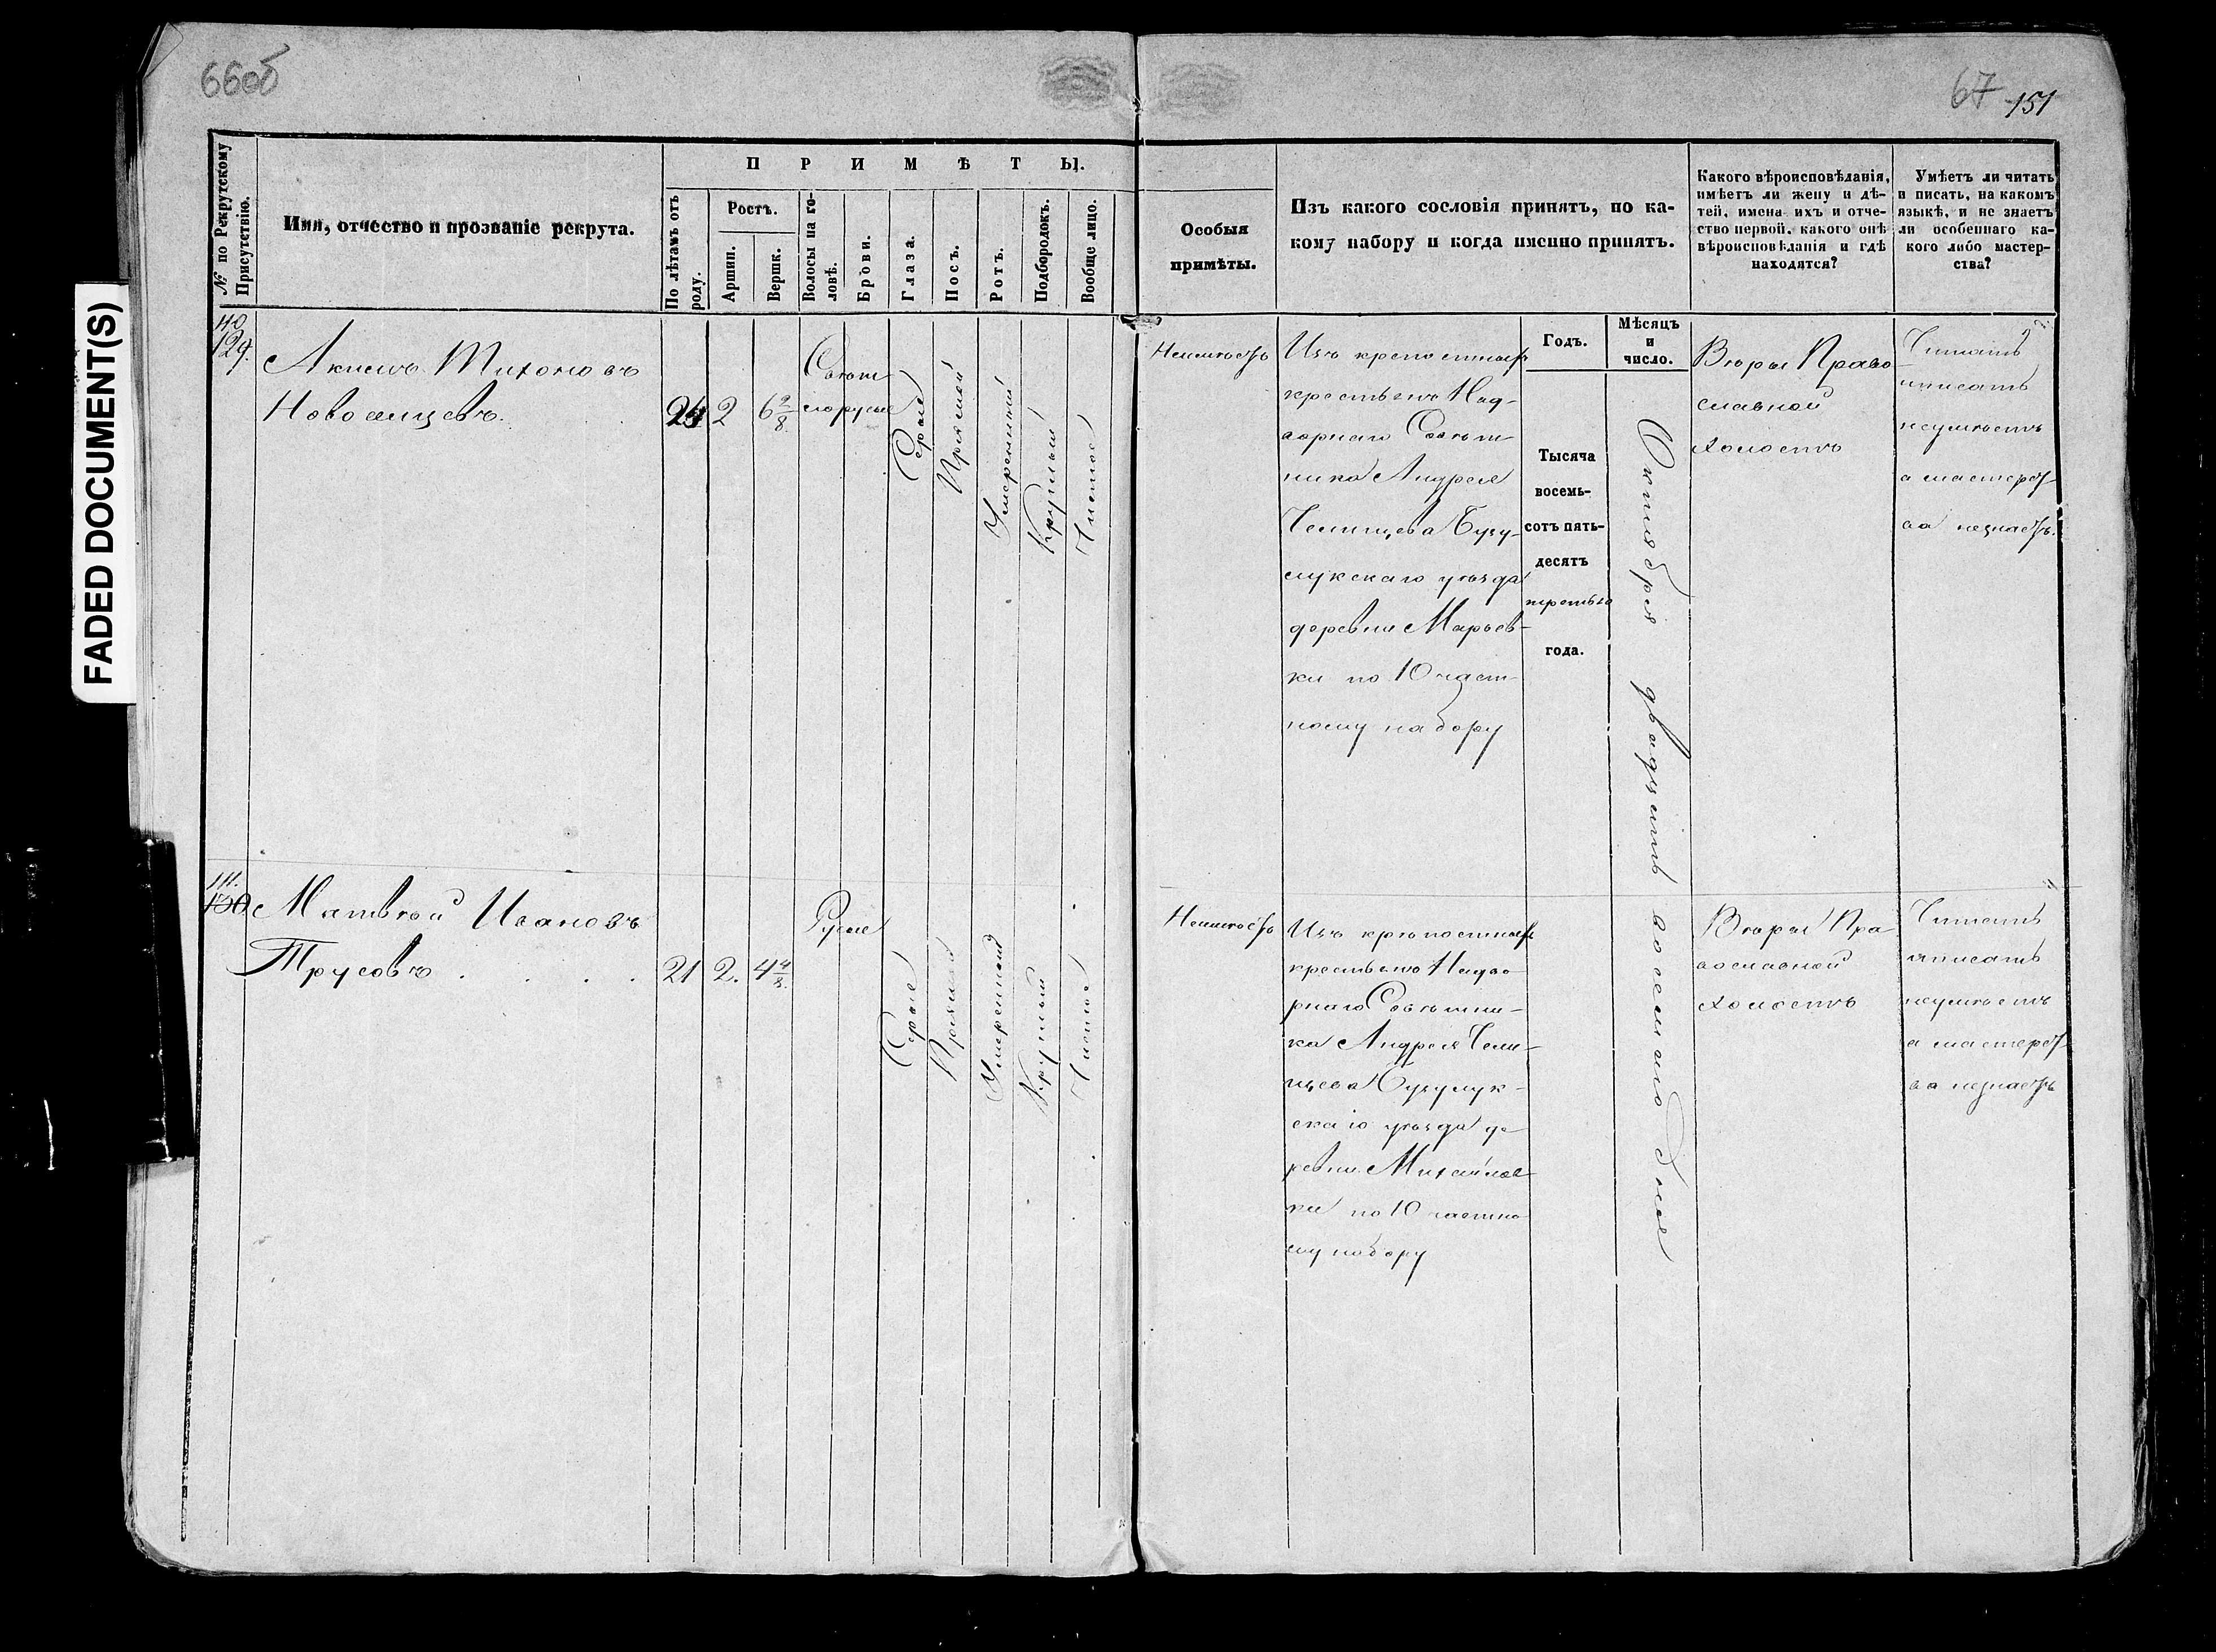 66об
67
151
FADED DOCUMENT(S)
№ по Рекрутскому
Присутствію.
Имя, отчество и прозваніе рекрута.
ПРИМѢТЫ.
По лѣтамъ отъ
роду.
Ростъ.
Аршин.
Вершк.
Волосы на го-
ловѣ.
Брови.
Глаза.
Носъ.
Ротъ.
Подбородокъ.
Вообще лицо.
Особыя
примѣты.
Изъ какого сословія принятъ, по ка-
кому набору и когда именно принятъ.
Какого вѣроисповѣданія,
имѣетъ ли жену и дѣ-
тей, имена ихъ и отче-
ство первой, какого онѣ
вѣроисповѣданія и гдѣ
находятся?
Умѣетъ ли читать
и писать, на какомъ
языкѣ, и не знаетъ
ли особеннаго ка-
кого либо мастер-
ства?
Годъ.
Мѣсяцъ
и
число.
129.
Акимъ Тихоновъ
Новосельцевъ.
2 6 2/8
Свѣт
лорусые
Серые
Прямой
Умеренный
Круглый
Чистое
Неимѣетъ
Изъ крепостныхъ
крестьянъ Над-
ворнаго Совѣт-
ника Андрея
Челищева Бузу-
лукскаго уѣзда
деревни Марьев-
ки по 10 част-
ному набору
Тысяча
восемь-
сотъ пять-
десятъ
третьяго
года.
Октября двадцать восьмаго дня
Вѣры Право
славной
холостъ
Читать
иписать
неумѣетъ
а мастерст-
ва незнаетъ.
130
Матвѣй Ивановъ
Трусовъ . . . . 21 2. 4 4/8.
Русые
Серые
Прямой
Умеренный
Круглый
Чистое
Неимѣетъ
Изъ крѣпостныхъ
крестьянъ Надво
рнаго Совѣтни-
ка Андрея Чели-
щева Бузулук-
скаго уѣзда де
ревни Михайлов
ки по 10 частно
му набору
Вѣры Пра
вославной
холостъ
Читать
иписать
неумѣетъ
а мастерст-
ва незнаетъ